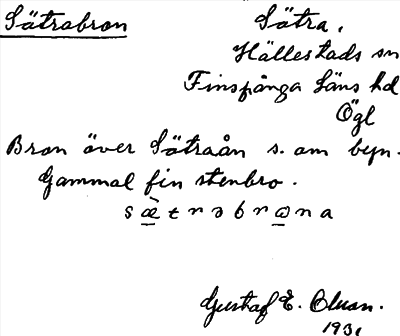 Sätrabron
Sätra.
Hällestads sn
Finspånga Läns hd
Ögl
Bron över Sätraån s. om byn.
Gammal fin stenbro.
sæ̀trəbrɷna
Gustaf E. Oluon.
1931